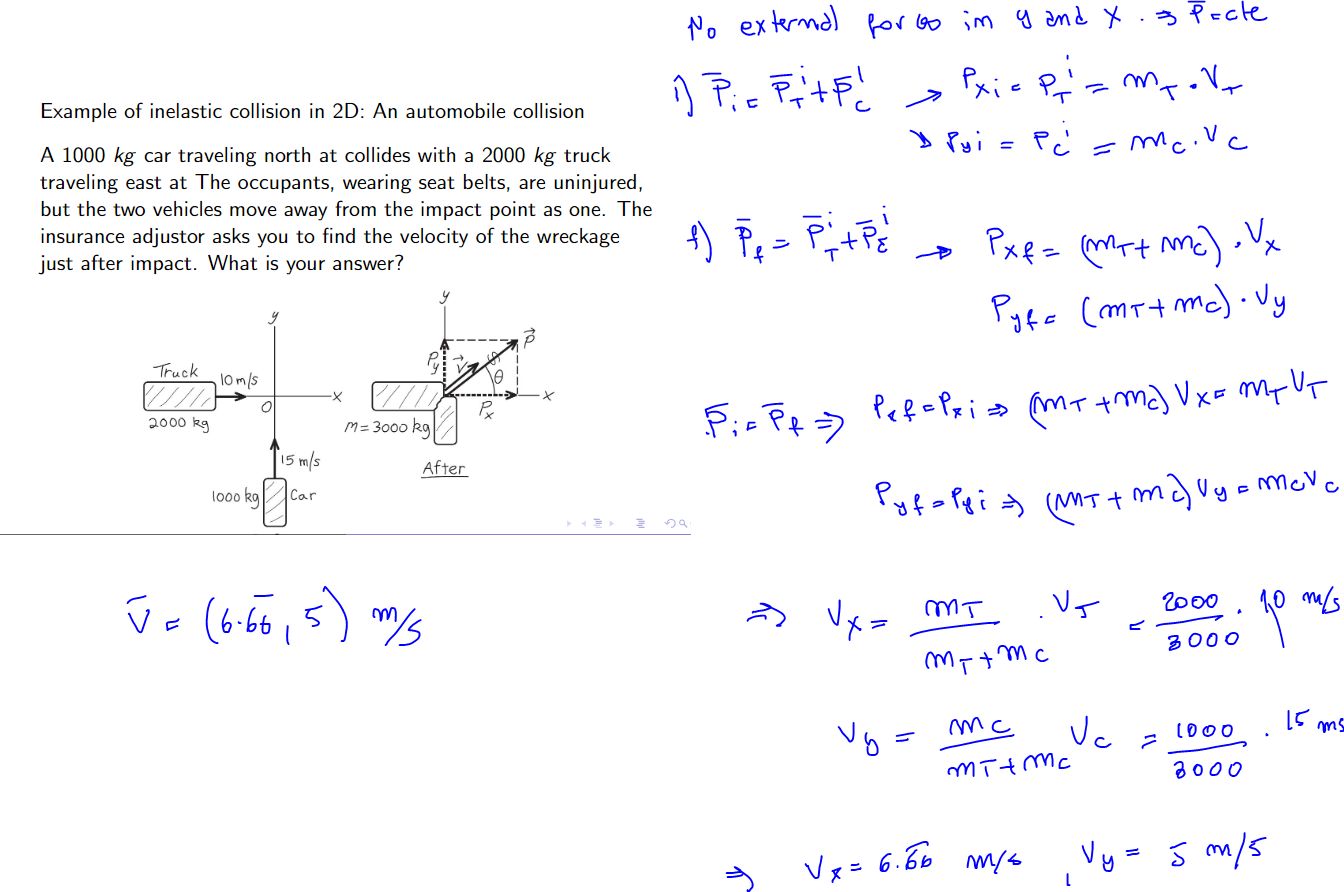 Example of inelastic collision in 2D: An automobile collision
A 1000 kg car traveling north at collides with a 2000 kg truck
traveling east at The occupants, wearing seat belts, are uninjured,
but the two vehicles move away from the impact point as one. The
insurance adjustor asks you to find the velocity of the wreckage
just after impact. What is your answer?
y
Truck
10 m/s
x
O
2000 kg
15 m/s
1000 kg
Car
y
P⃗
P_y
V⃗
θ
x
P_x
M = 3000 kg
After
V̄ = (6.6̄6̄, 5) m/s
No external forces in y and x. ⇒ P̄ = cte
i) P̄_i = P̄_T^i + P̄_C^i → P_xi = P_T^i = m_T . V_T
P_yi = P_C^i = m_C . V_C
f) P̄_f = P̄_T^i + P̄_C^i → P_xf = (m_T + m_C) . V_x
P_yf = (m_T + m_C) . V_y
P̄_i = P̄_f ⇒ P_xf = P_xi ⇒ (m_T + m_C) V_x = m_T V_T
P_yf = P_yi ⇒ (m_T + m_C) V_y = m_C V_C
⇒ V_x = m_T / (m_T + m_C) . V_T = 2000 / 3000 . 10 m/s
V_y = m_C / (m_T + m_C) V_C = 1000 / 3000 . 15 ms
⇒ V_x = 6.6̄6̄ m/s , V_y = 5 m/s